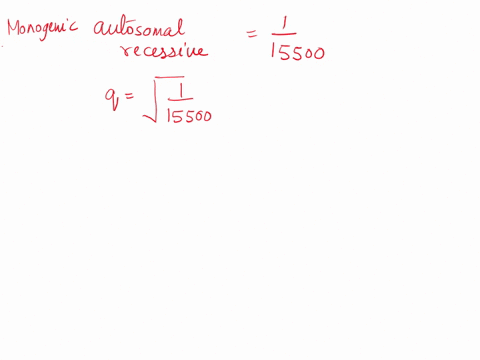 Monogenic autosomal recessive = 1/15500
q = √(1/15500)